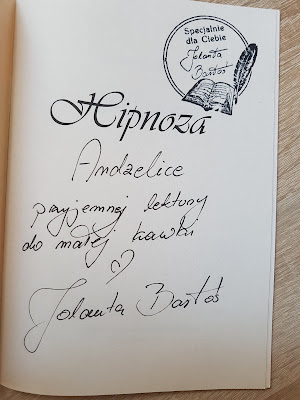 Specjalnie
dla Ciebie
Jolanta
Bartoś
Hipnoza
Andżelice
przyjemnej lektury
do małej kawki
Jolanta Bartoś